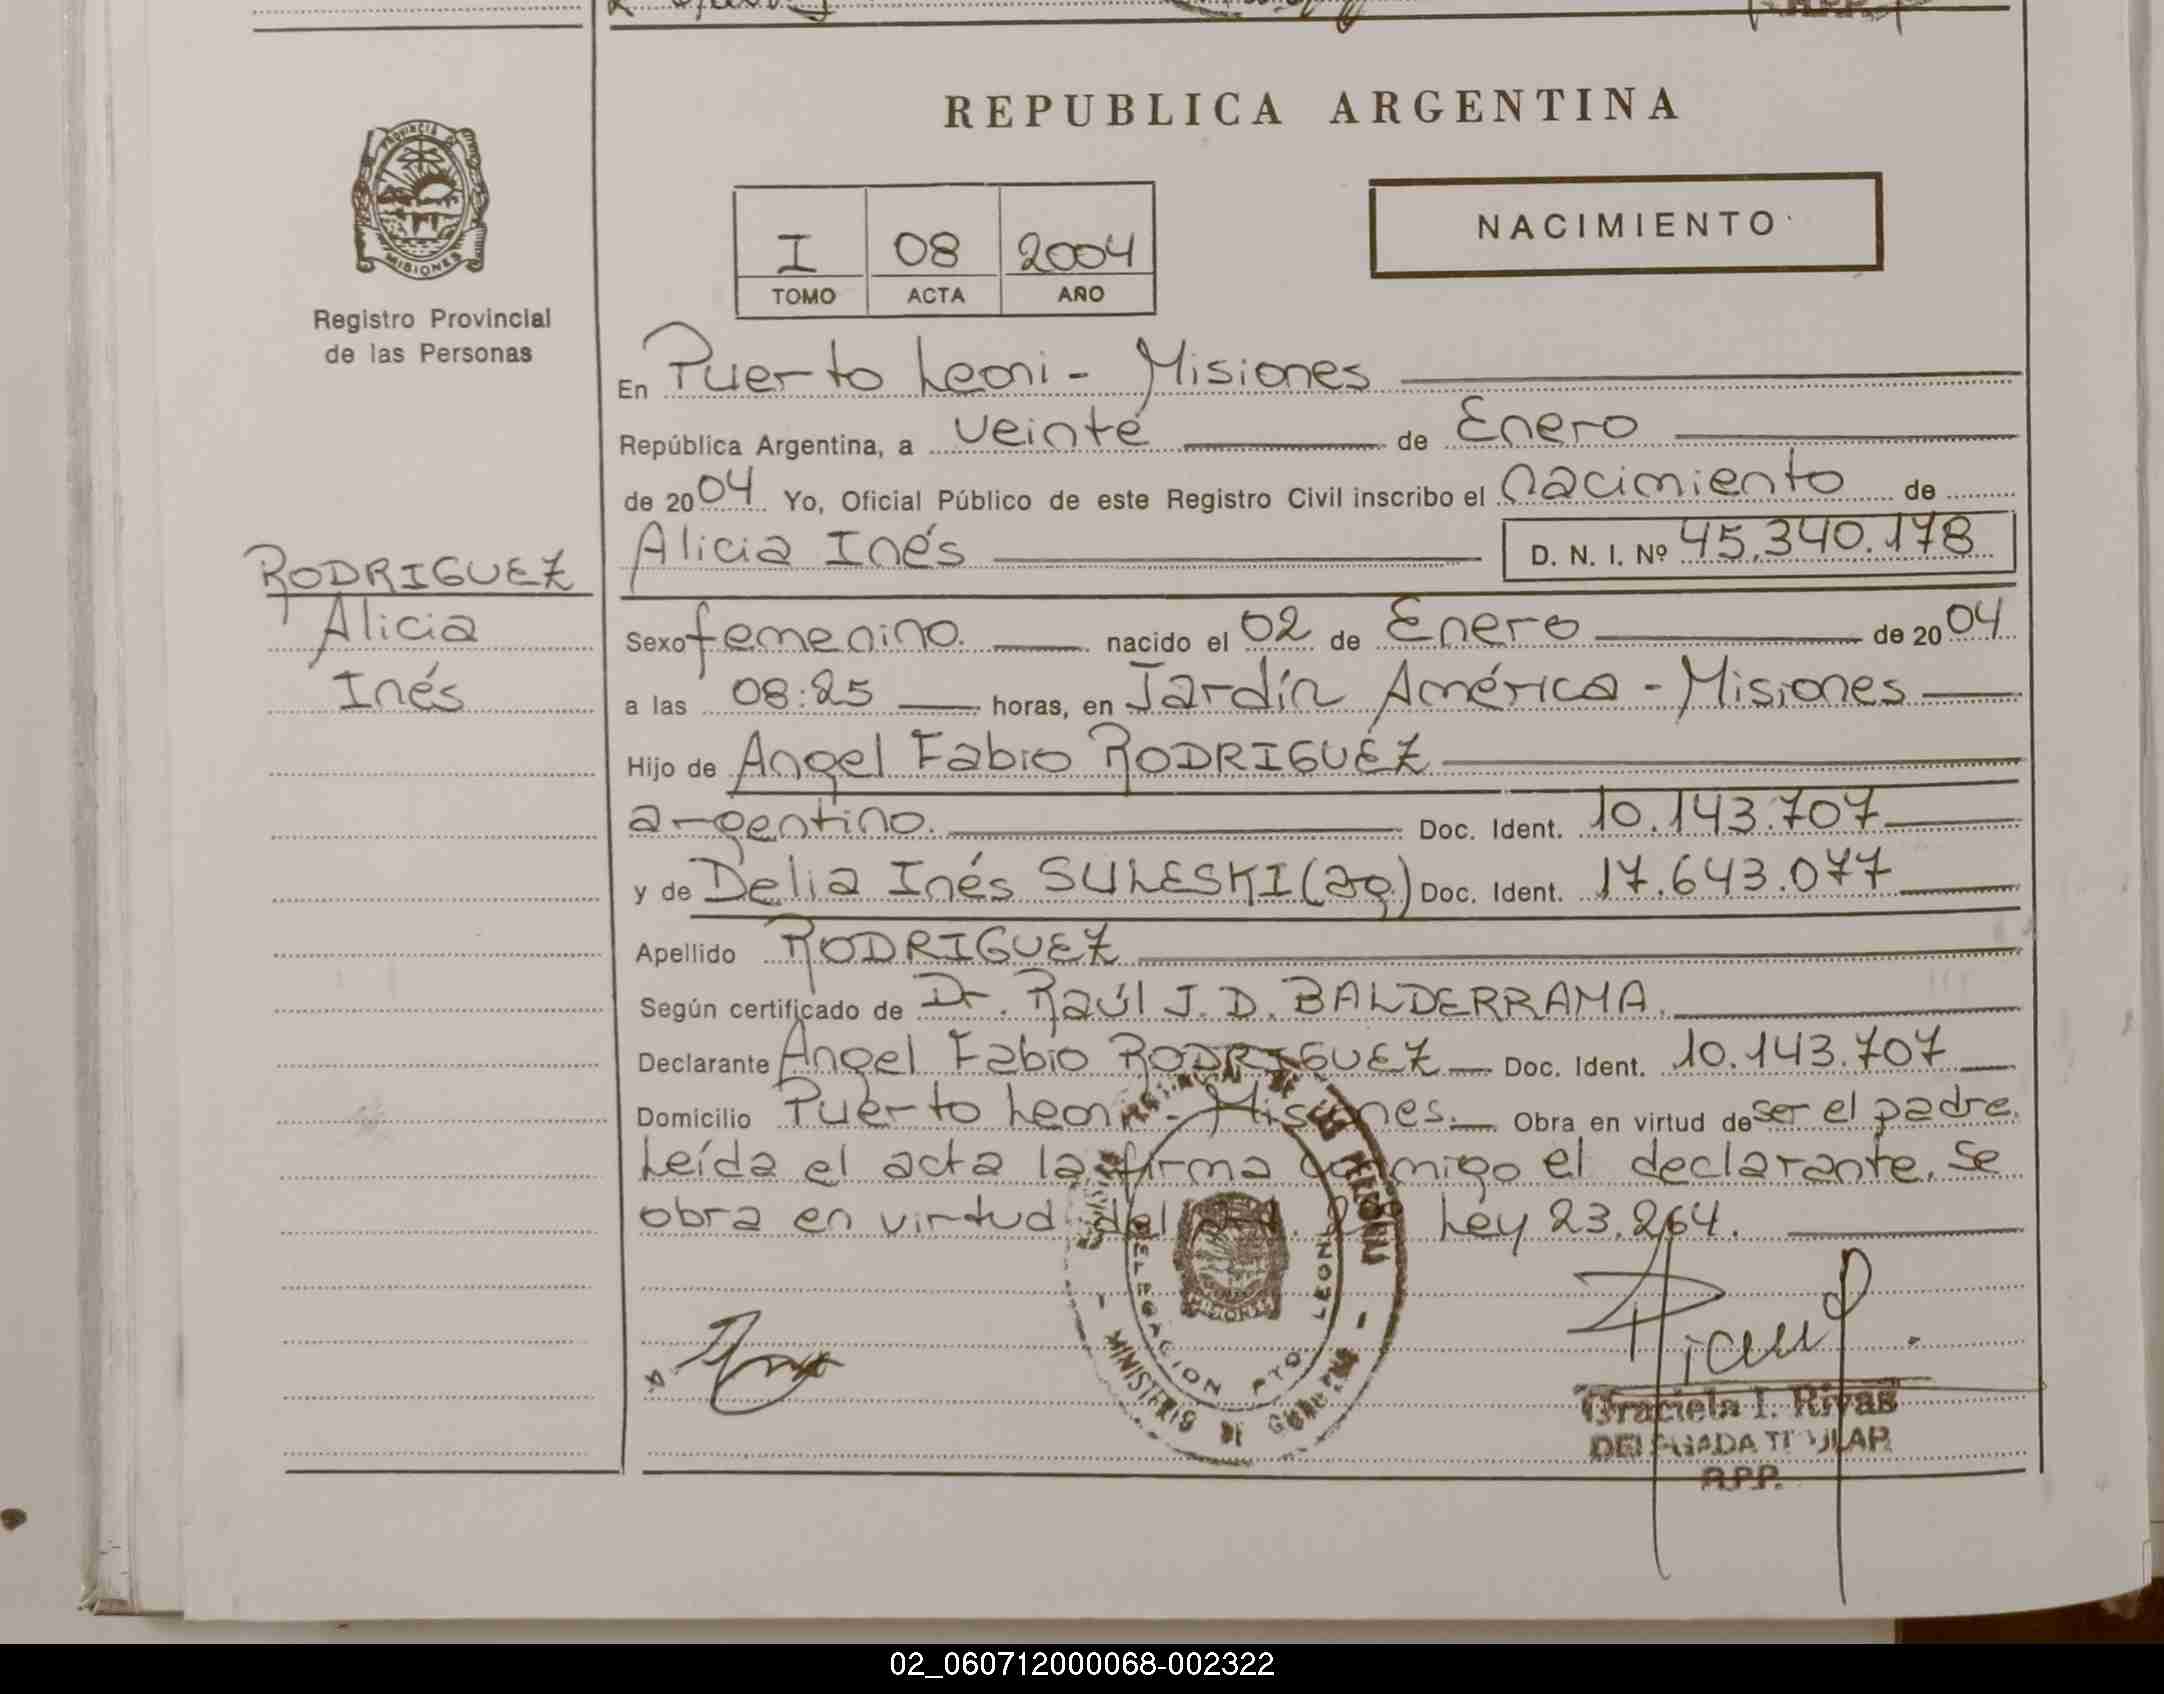 REPUBLICA ARGENTINA
NACIMIENTO
PROVINCIA DE
MISIONES
Registro Provincial
de las Personas
I 08 2004
TOMO ACTA AÑO
En Puerto Leoni - Misiones
República Argentina, a veinte de Enero
de 2004 Yo, Oficial Público de este Registro Civil inscribo el nacimiento de
Alicia Inés D. N. I. Nº 45.340.178
RODRIGUEZ
Alicia
Inés
Sexo femenino. nacido el 02 de Enero de 2004
a las 08:25 horas, en Jardín América - Misiones
Hijo de Angel Fabio RODRIGUEZ
argentino. Doc. Ident. 10.143.707
y de Delia Inés SULESKI (ag.) Doc. Ident. 17.643.077
Apellido RODRIGUEZ
Según certificado de Dr. Raúl J. D. BALDERRAMA.
Declarante Angel Fabio RODRIGUEZ Doc. Ident. 10.143.707
Domicilio Puerto Leoni - Misiones. Obra en virtud de ser el padre.
Leída el acta la firma conmigo el declarante. Se
obra en virtud del Ley 23.264.
DELEGACION PTO LEONI
MISIONES
Graciela I. Rivas
DELEGADA TITULAR
R.P.P.
02_060712000068-002322